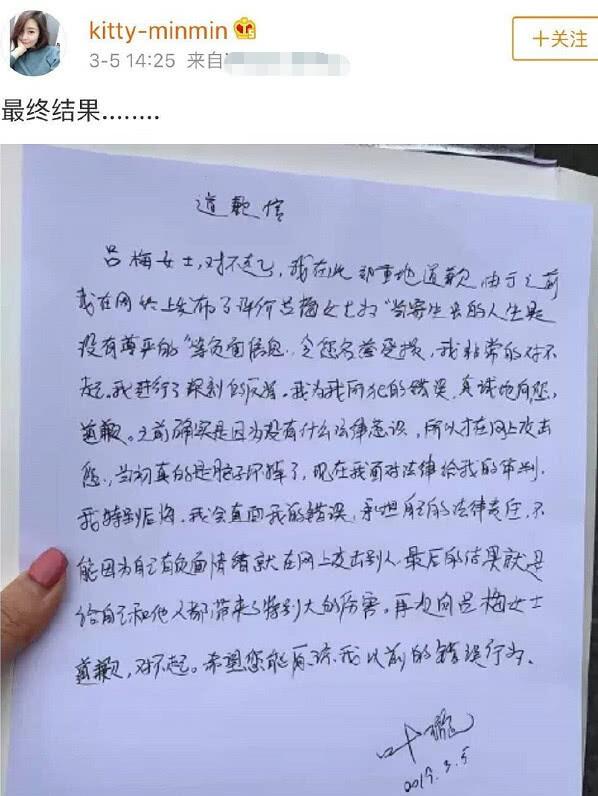 kitty-minmin
3-5 14:25 来自
+关注
最终结果........
道歉信
吕梅女士,对不起,我在此郑重地道歉 由于之前
我在网络上发布了评价吕梅女士的“当寄生虫的人生是
没有尊严的”等负面信息,令您名誉受损,我非常的对不
起。我进行了深刻的反省。我为我所犯的错误,真诚地向您,
道歉。之前确实是因为没有什么法律意识,所以才在网上攻击
您,当初真的是脑子坏掉了,现在我面对法律给我的审判,
我特别后悔。我会直面我的错误,承担自己的法律责任,不
能因为自己有负面情绪就在网上攻击别人,最后的结果就是
给自己和他人都带来了特别大的厉害。再次向吕梅女士
道歉,对不起。希望您能原谅我以前的错误行为。
叶璇
2019.3.5